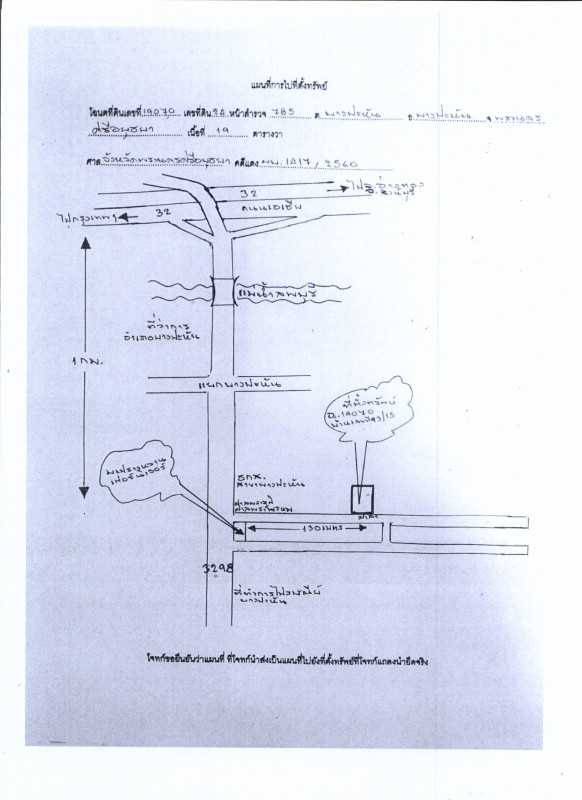 แผนที่การไปที่ตั้งทรัพย์
โฉนดที่ดินเลขที่ 19070 เลขที่ดิน 24 หน้าสำรวจ 785 ต. บางปะหัน อ. บางปะหัน จ. พระนคร
ศรีอยุธยา เนื้อที่ 19 ตารางวา
ศาล จังหวัดพระนครศรีอยุธยา คดีแดง ผบ. 1817 / 2560
32
ไปจ.อ่างทอง
จ.สิงห์บุรี
ถนนเอเซีย
ไปกรุงเทพฯ
32
แม่น้ำลพบุรี
ที่ว่าการ
อำเภอบางปะหัน
1 กม.
แยกบางปะหัน
ที่ตั้งทรัพย์
ฉ.19070
เฟอร์นิเจอร์
ธกส.
สาขาบางปะหัน
ศาลพระภูมิ
ศาลพระพรหม
ศาลา
130 เมตร
3298
ที่ทำการไปรษณีย์
บางปะหัน
โจทก์ขอยืนยันว่าแผนที่ ที่โจทก์นำส่งเป็นแผนที่ไปยังที่ตั้งทรัพย์ที่โจทก์แถลงนำยึดจริง